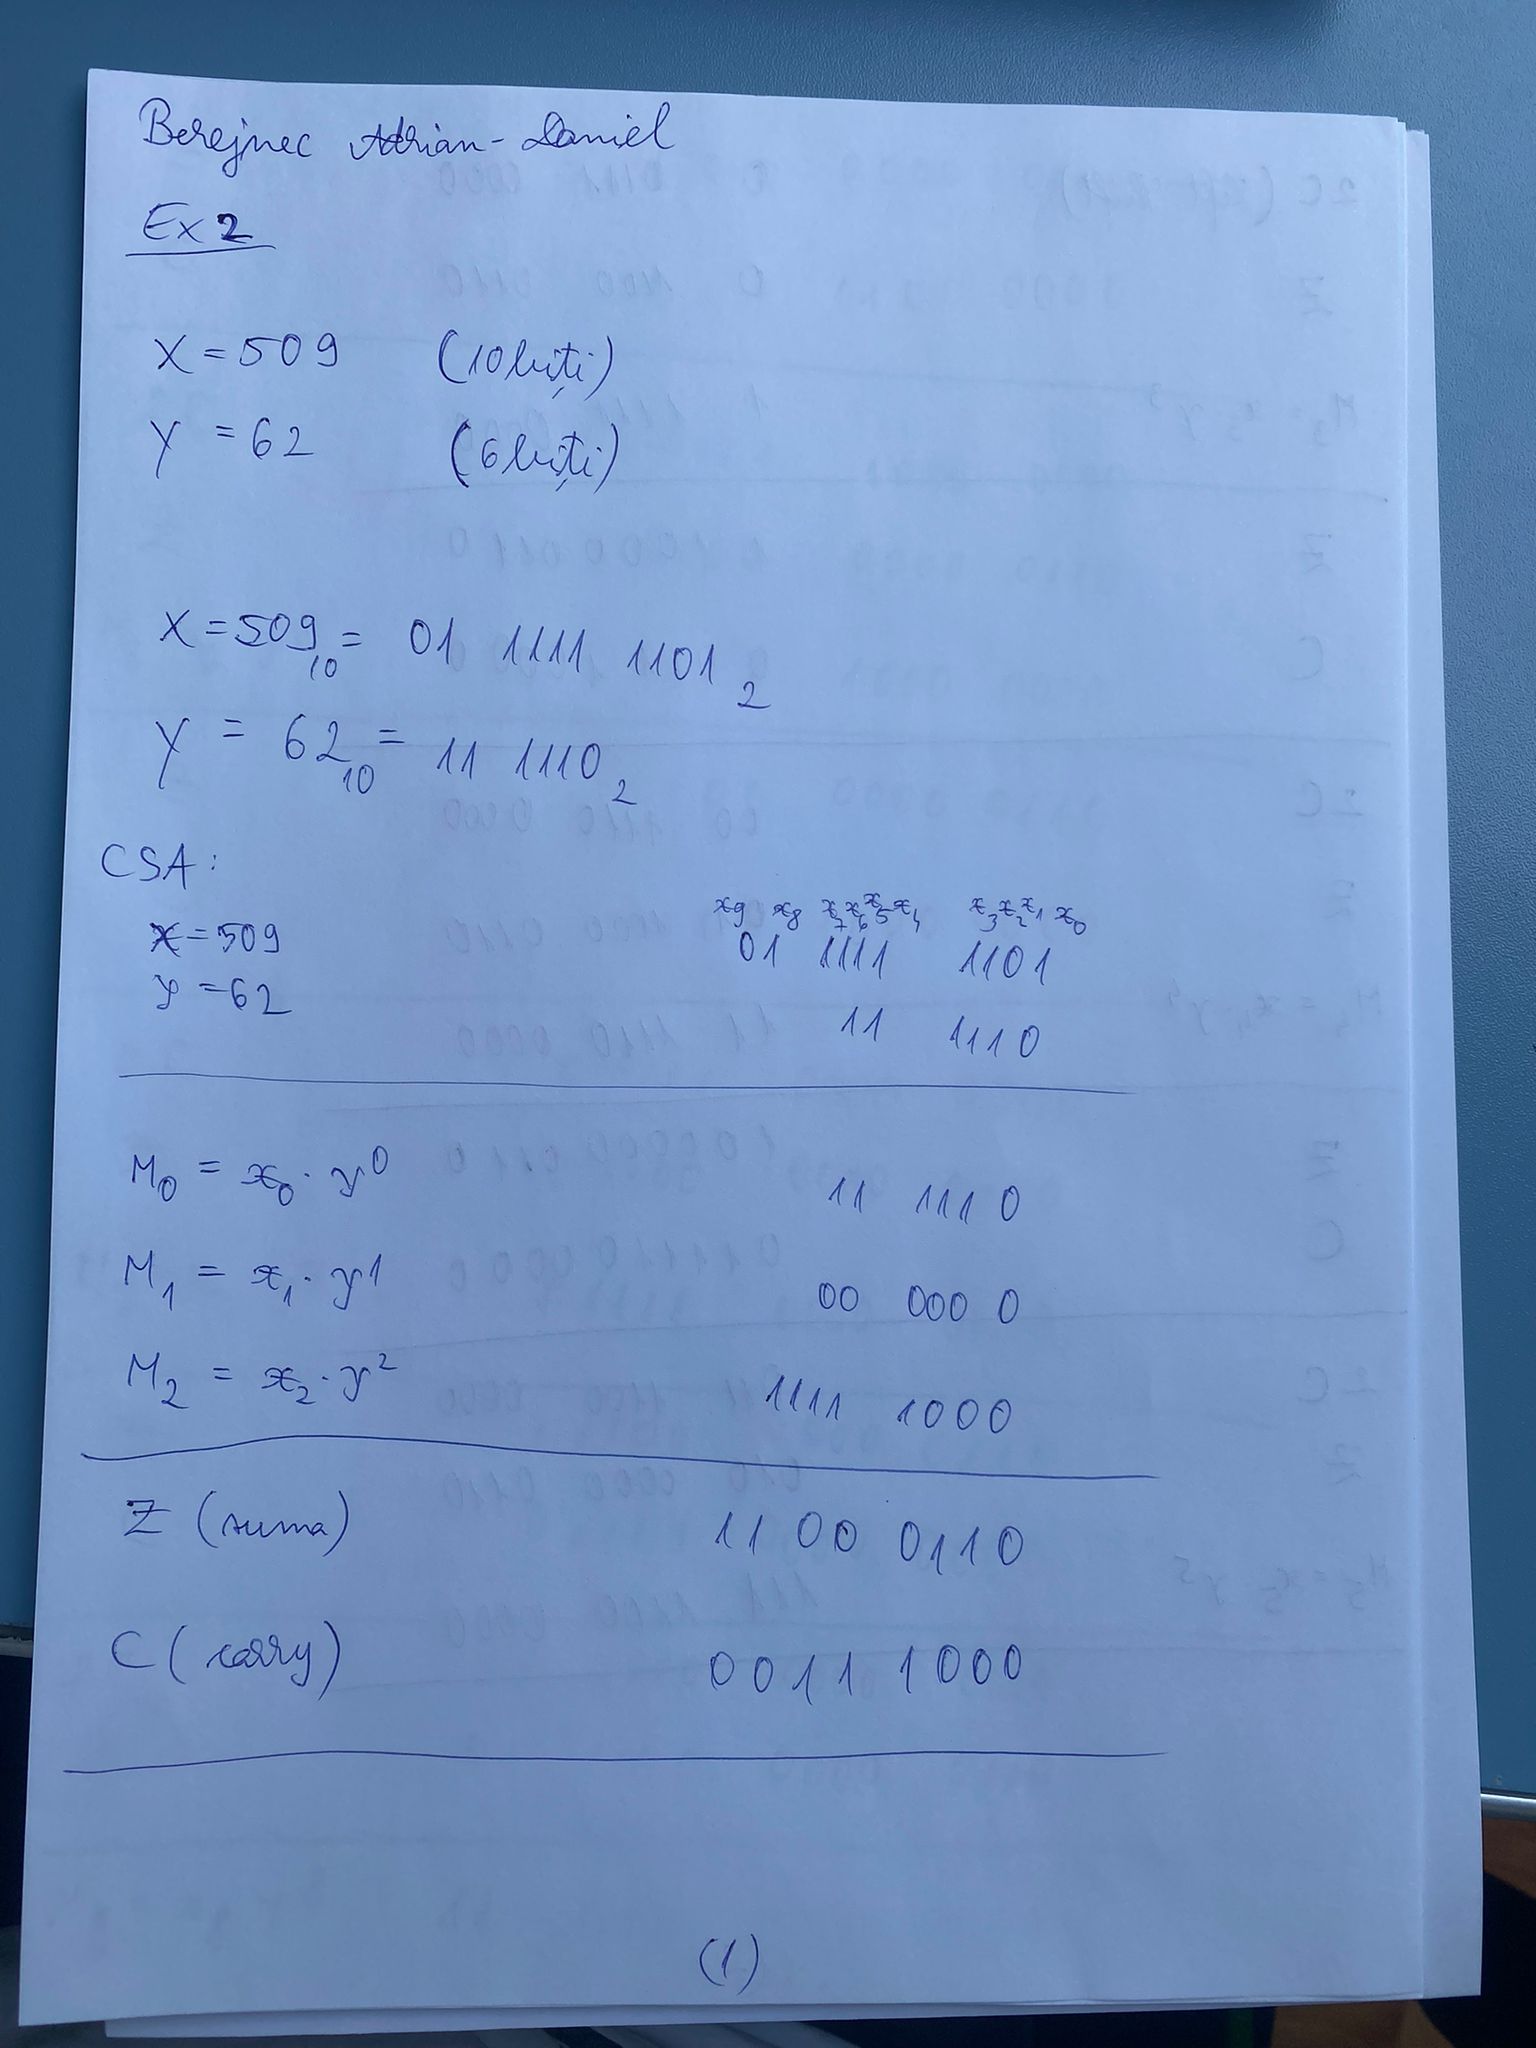 Berejnec Adrian-Daniel
Ex 2
X = 509 (10 biți)
Y = 62 (6 biți)
X = 509₁₀ = 01 1111 1101₂
Y = 62₁₀ = 11 1110₂
CSA:
x₉ x₈ x₇ x₆ x₅ x₄ x₃ x₂ x₁ x₀
x = 509 01 1111 1101
y = 62 11 1110
M₀ = x₀ · y⁰ 11 1110
M₁ = x₁ · y¹ 00 0000
M₂ = x₂ · y² 1111 1000
Z (suma) 1100 0110
C (carry) 0011 1000
(1)